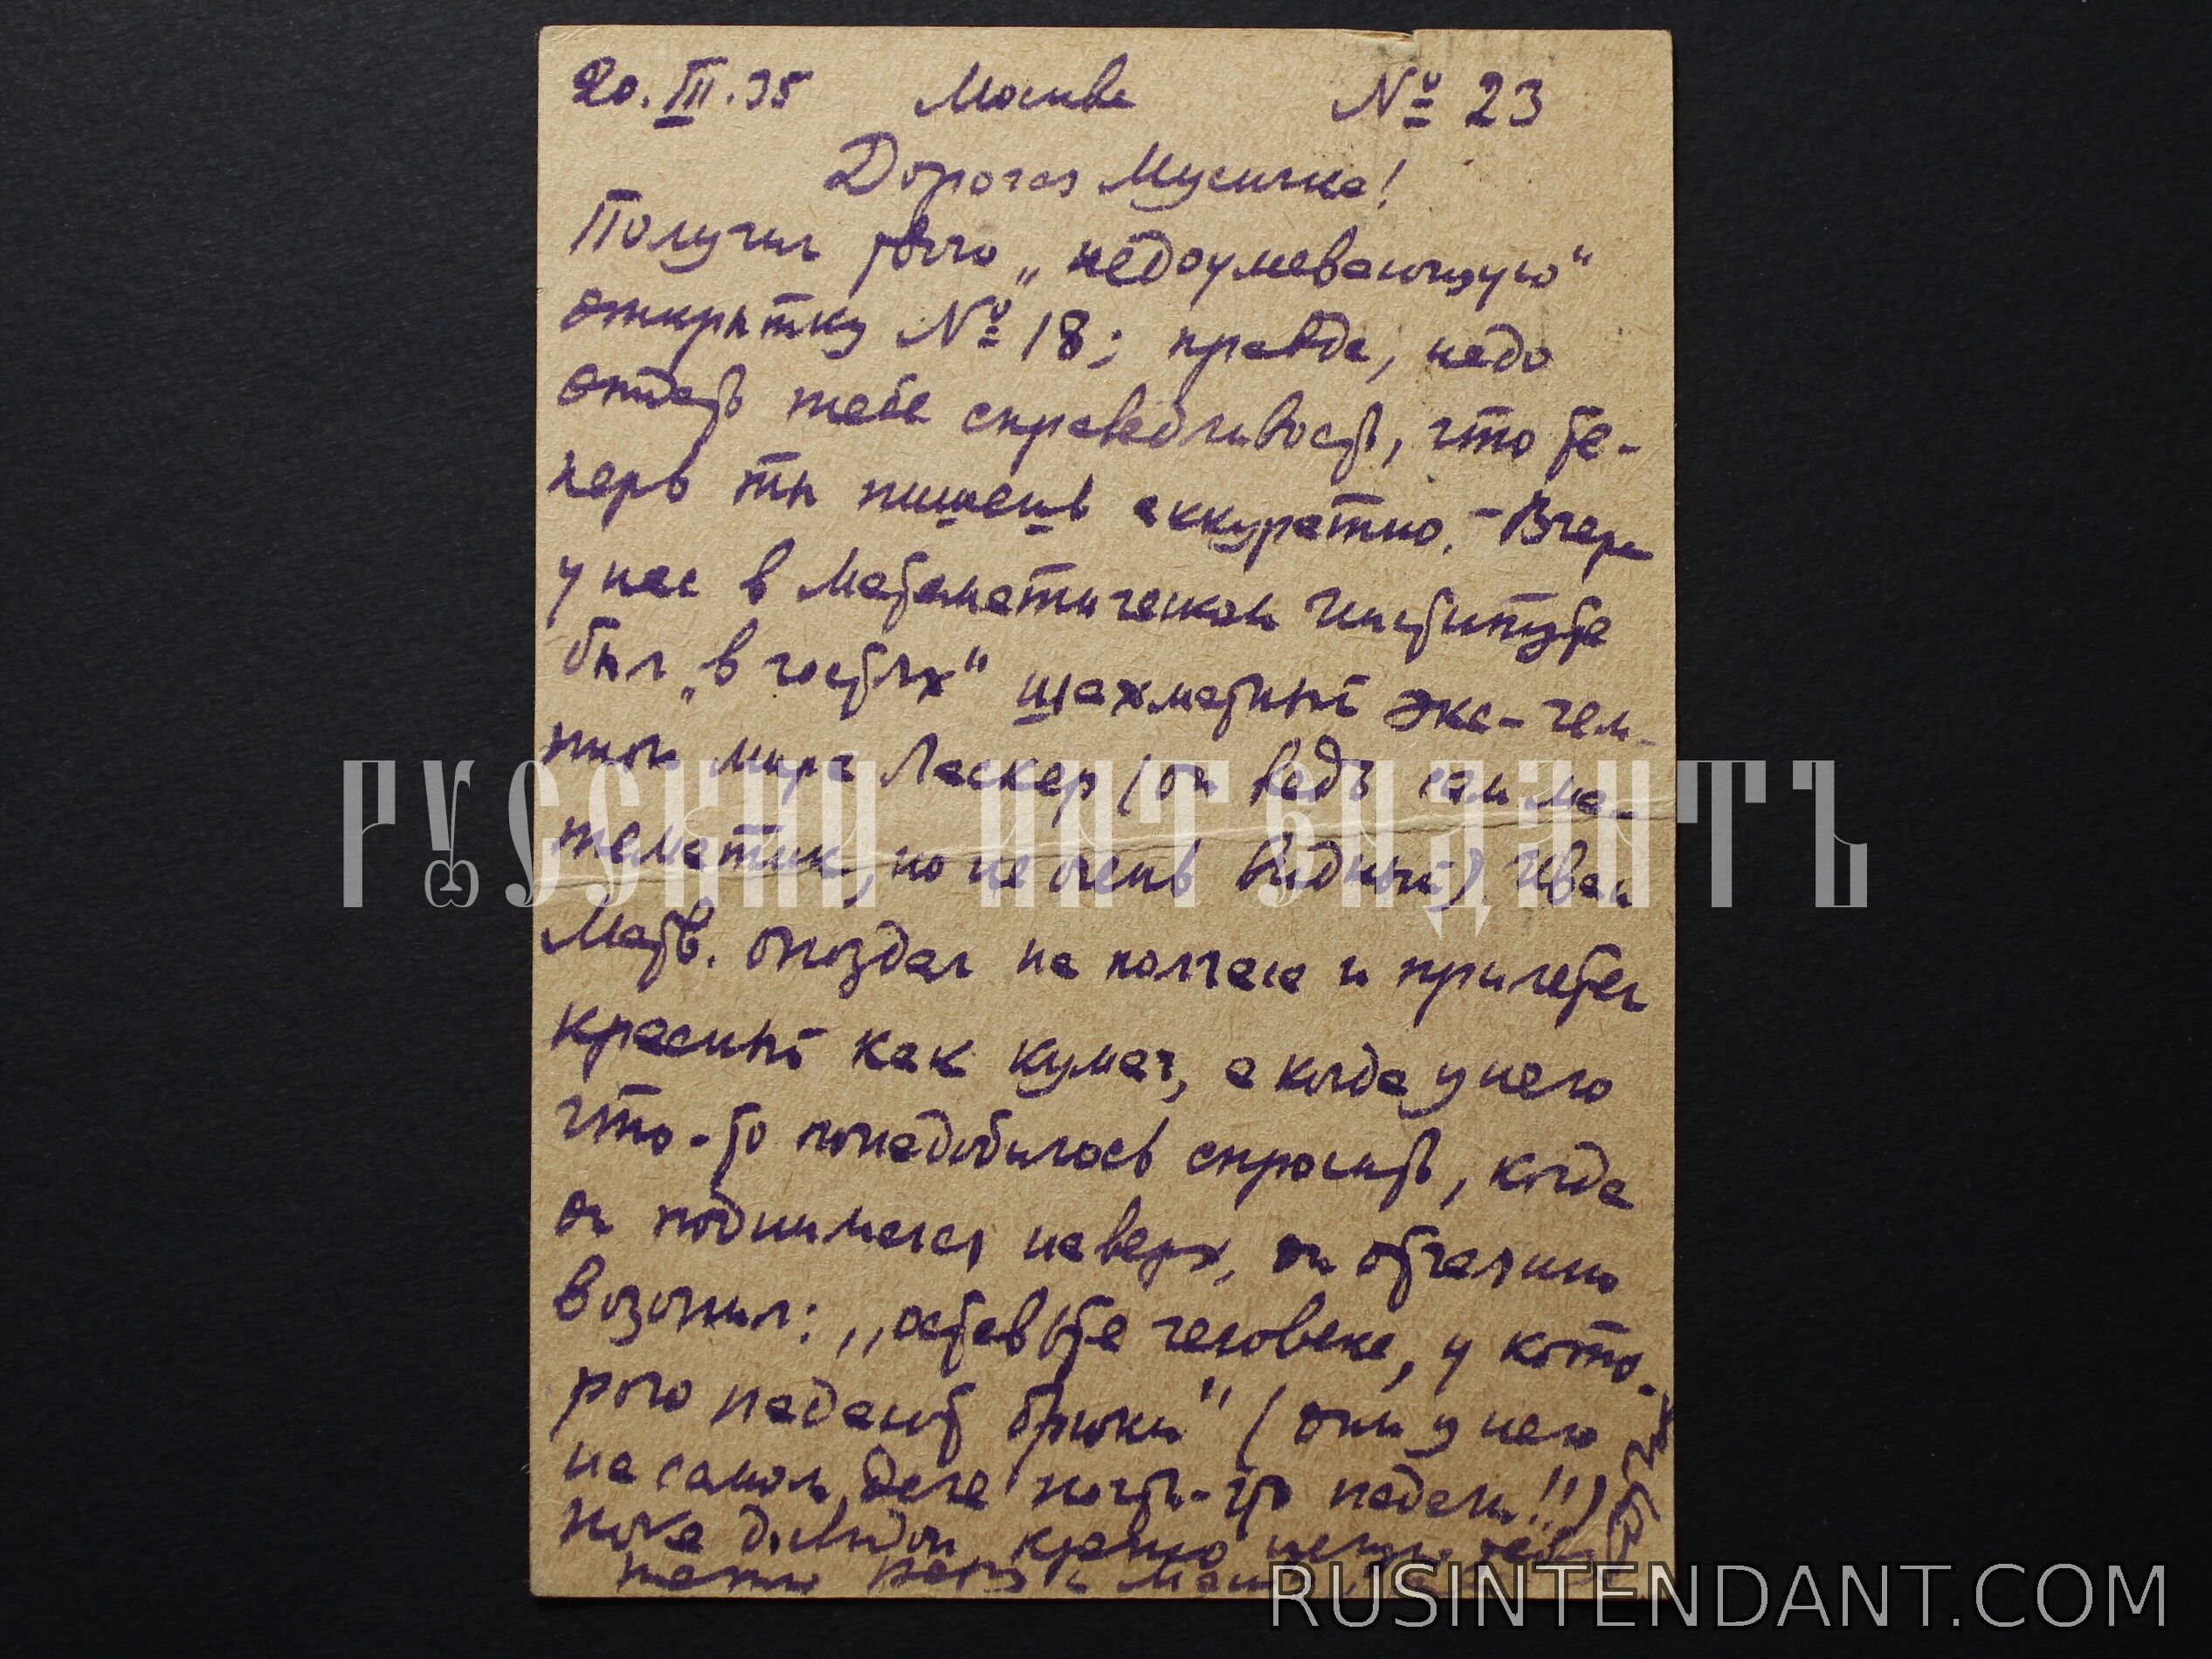 20.III.35 Москва № 23
Дорогая Мусичка!
Получил твою „недоумевающую“
открытку № 18; правда, надо
отдать тебе справедливость, что те-
перь ты пишешь аккуратно. – Вчера
у нас в Математическом Институте
был „в гостях“ шахматный экс-чем-
пион мира Ласкер (он ведь сам ма-
тематик, но не очень видный). Иван
Матв. опоздал на полчаса и прилетел
красный как кумач, а когда у него
что-то понадобилось спросить, когда
он поднимался наверх, он отчаянно
возопил: „оставьте человека, у кото-
рого падают брюки“ (они у него
на самом деле почти-что падали!!)
Пока до свидания крепко целую тебя
папу и
РУССКІЙ ИНТЕНДАНТЪ
RUSINTENDANT.COM